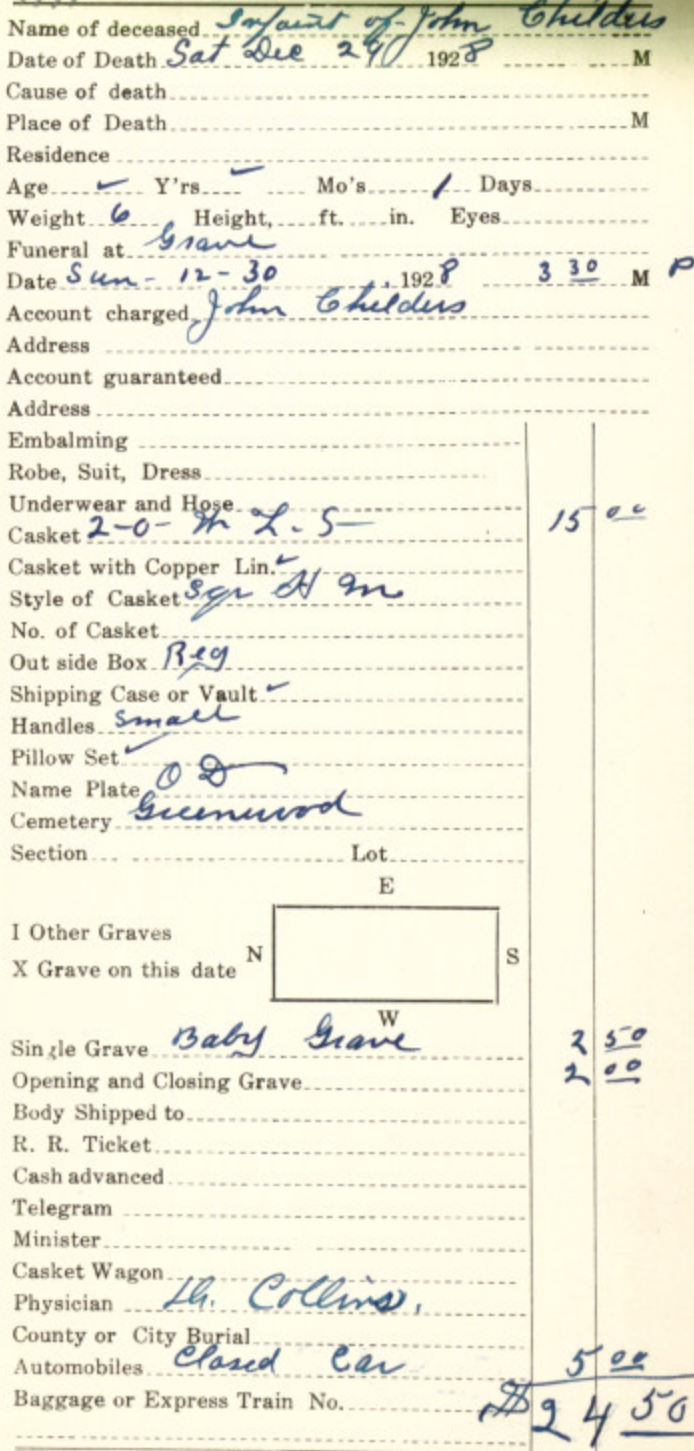 Name of deceased Infant of John Childers
Date of Death Sat Dec 29 1928 M
Cause of death
Place of Death M
Residence
Age ✓ Y'rs ✓ Mo's 1 Days
Weight 6 Height, ft. in. Eyes
Funeral at Grave
Date Sun - 12-30 , 1928 3 30 M P
Account charged John Childers
Address
Account guaranteed
Address
Embalming
Robe, Suit, Dress
Underwear and Hose
Casket 2-0- L. S 15 00
Casket with Copper Lin. ✓
Style of Casket Sqr
No. of Casket
Out side Box Reg
Shipping Case or Vault ✓
Handles Small
Pillow Set ✓
Name Plate O D
Cemetery Greenwood
Section Lot
E
I Other Graves
N S
X Grave on this date
W
Single Grave Baby Grave 2 50
Opening and Closing Grave 2 00
Body Shipped to
R. R. Ticket
Cash advanced
Telegram
Minister
Casket Wagon
Physician Collins.
County or City Burial
Automobiles Closed Car 5 00
Baggage or Express Train No. $24 50